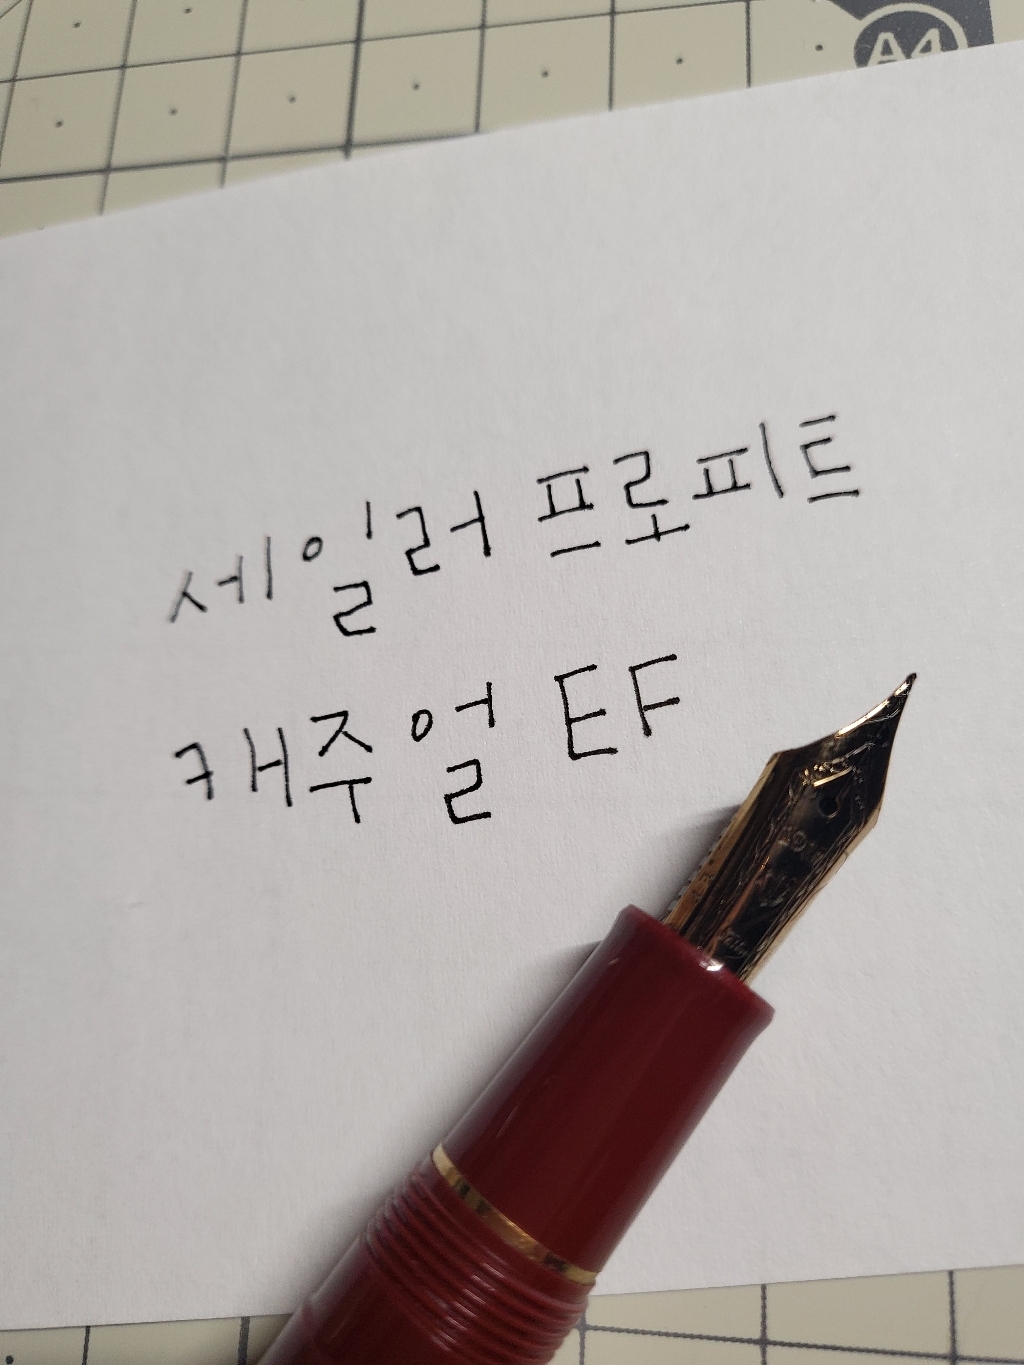 A4
세일러 프로피트
캐주얼 EF